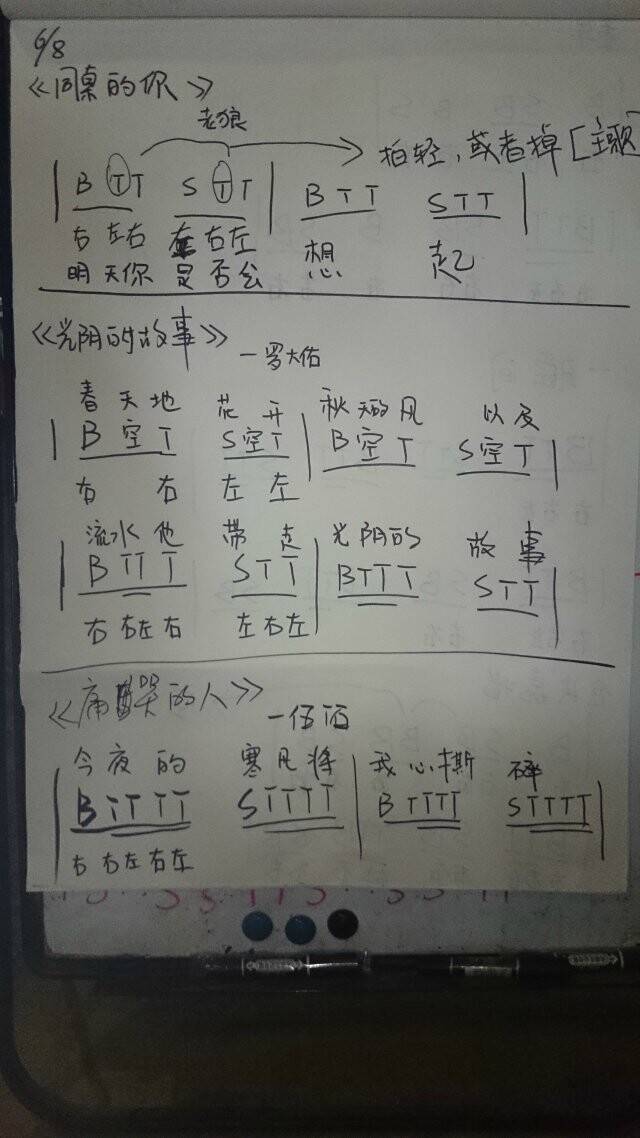 6/8
《同桌的你》
老狼
拍轻,或者掉[主歌]
| B T T S T T | B T T S T T |
右 左右 左 右左 想 起
明天你 是否会
《光阴的故事》 —罗大佑
春天地 花开 秋天的风 以及
| B 空 T S 空 T | B 空 T S 空 T |
右 右 左 左
流水他 带走 光阴的 故事
| B TT T S T T | B TT T S T T |
右 右左 右 左右左
《痛哭的人》 —伍佰
今夜的 寒风将 我心撕 碎
| B TT TT S TT TT | B TT TT S TT TT |
右 右左 右左